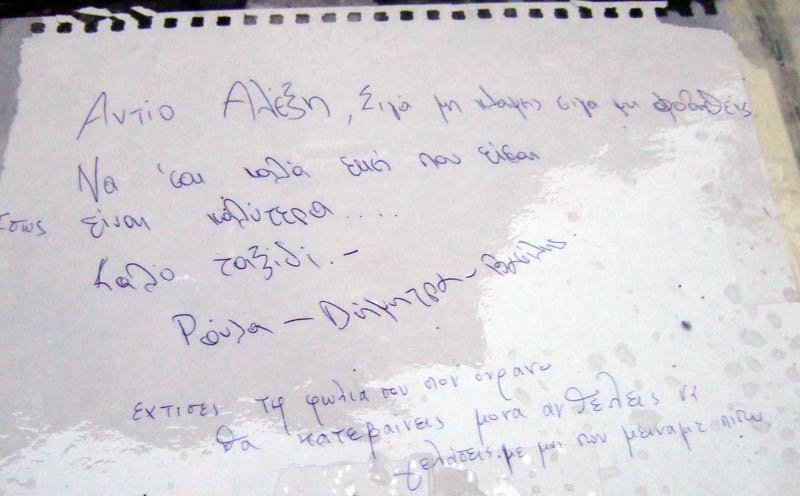 Αντίο Αλέξη, Σιγά μη κλαψης σιγα μη φοβηθεις
Να 'σαι καλά εκει που είσαι
Ίσως είναι καλύτερα....
Καλό ταξίδι.-
Ρούλα - Δήμητρα - Βασίλης
εχτισες τη φωλιά σου στον ουρανο
θα κατεβαινεις μονα αν θέλεις να
γελάσεις με μας που μειναμε πίσω